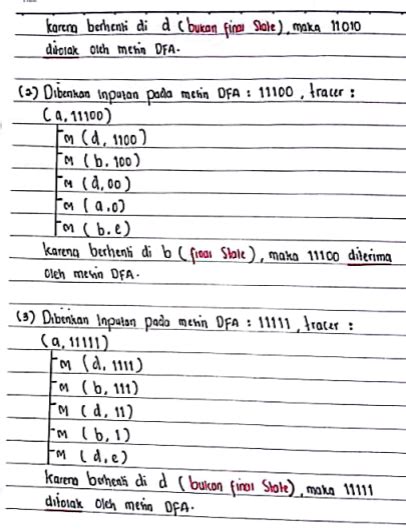 karena berhenti di d (bukan final State), maka 11010
ditolak oleh mesin DFA.
(2) Diberikan inputan pada mesin DFA : 11100, tracer :
(a, 11100)
⊢M (d, 1100)
⊢M (b, 100)
⊢M (d, 00)
⊢M (a, 0)
⊢M (b, e)
karena berhenti di b (final State), maka 11100 diterima
oleh mesin DFA.
(3) Diberikan Inputan pada mesin DFA : 11111, tracer :
(a, 11111)
⊢M (d, 1111)
⊢M (b, 111)
⊢M (d, 11)
⊢M (b, 1)
⊢M (d, e)
karena berhenti di d (bukan final State), maka 11111
ditolak oleh mesin DFA.